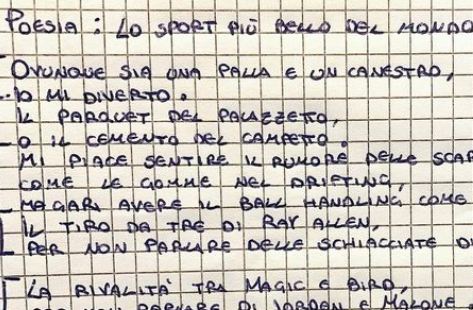 POESIA : LO SPORT PIÙ BELLO DEL MONDO
OVUNQUE SIA UNA PALLA E UN CANESTRO,
IO MI DIVERTO.
IL PARQUET DEL PALAZZETTO,
O IL CEMENTO DEL CAMPETTO.
MI PIACE SENTIRE IL RUMORE DELLE SCAR
COME LE GOMME NEL DRIFTING,
MAGARI AVERE IL BALL HANDLING COME
IL TIRO DA TRE DI RAY ALLEN,
PER NON PARLARE DELLE SCHIACCIATE D
LA RIVALITÀ TRA MAGIC E BIRD,
NON PARLARE DI JORDAN E MALONE